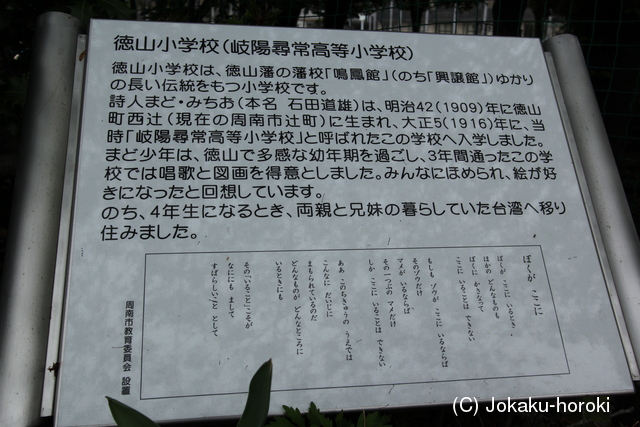 徳山小学校(岐陽尋常高等小学校)
徳山小学校は、徳山藩の藩校「鳴鳳館」(のち「興譲館」)ゆかり
の長い伝統をもつ小学校です。
詩人まど・みちお(本名 石田道雄)は、明治42(1909)年に徳山
町西辻(現在の周南市辻町)に生まれ、大正5(1916)年に、当
時「岐陽尋常高等小学校」と呼ばれたこの学校へ入学しました。
まど少年は、徳山で多感な幼年期を過ごし、3年間通ったこの学
校では唱歌と図画を得意としました。みんなにほめられ、絵が好
きになったと回想しています。
のち、4年生になるとき、両親と兄妹の暮らしていた台湾へ移り
住みました。
ぼくが ここに
ぼくが ここに いるとき
ほかの どんなものも
ぼくに かさなって
ここに いることは できない
もしも ゾウが ここに いるならば
そのゾウだけ
マメが いるならば
その一つぶの マメだけ
しか ここに いることは できない
ああ このちきゅうの うえでは
こんなに だいじに
まもられているのだ
どんなものが どんなところに
いるときにも
その「いること」こそが
なににも まして
すばらしいこと として
周南市教育委員会 設置
(C) Jokaku-horoki